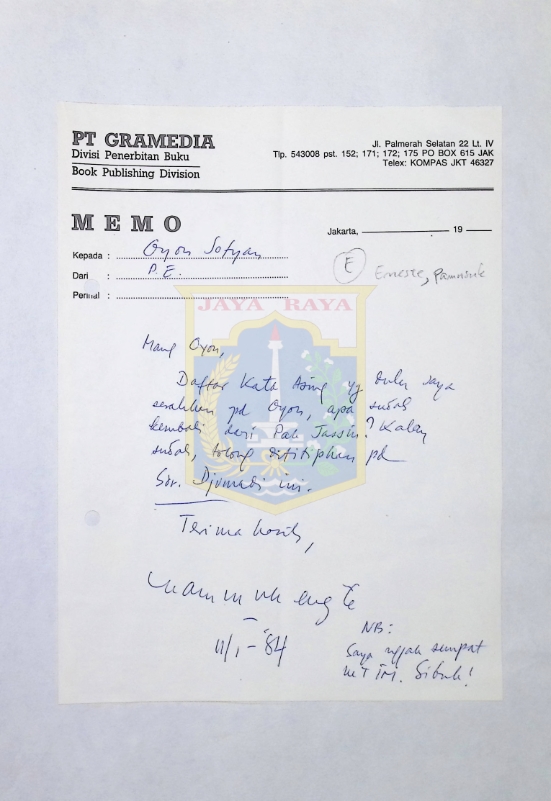 PT GRAMEDIA
Divisi Penerbitan Buku
Book Publishing Division
Jl. Palmerah Selatan 22 Lt. IV
Tlp. 543008 pst. 152; 171; 172; 175 PO BOX 615 JAK
Telex: KOMPAS JKT 46327
MEMO
Jakarta, 19
Kepada : Oyon Sofyan
Dari : P.E.
Perihal :
E Erneste, Pamusuk
JAYA RAYA
Mang Oyon,
Daftar Kata Asing yg dulu saya
serahkan pd Oyon, apa sudah
kembali dari Pak Jassin? Kalau
sudah, tolong dititipkan pd
Sdr. Djumadi ini.
Terima kasih,
11/1-'84
NB:
Saya nggak sempat
ke TIM. Sibuk!